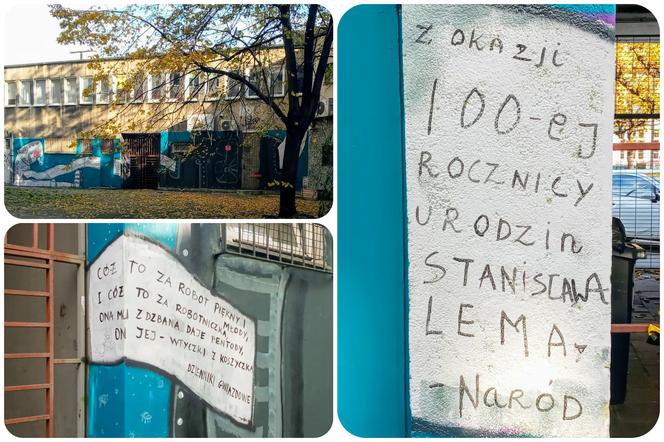 COŻ TO ZA ROBOT PIĘKNY I
I CÓŻ TO ZA ROBOTNICZKA MŁODY,
ONA MU Z DZBANA DAJE PENTODY,
ON JEJ - WTYCZKI Z KOSZYCZKA
DZIENNIKI GWIAZDOWE
Z OKAZJI
100-ej
ROCZNICY
URODZIN
STANISŁAWA
LEMA,
- NARÓD